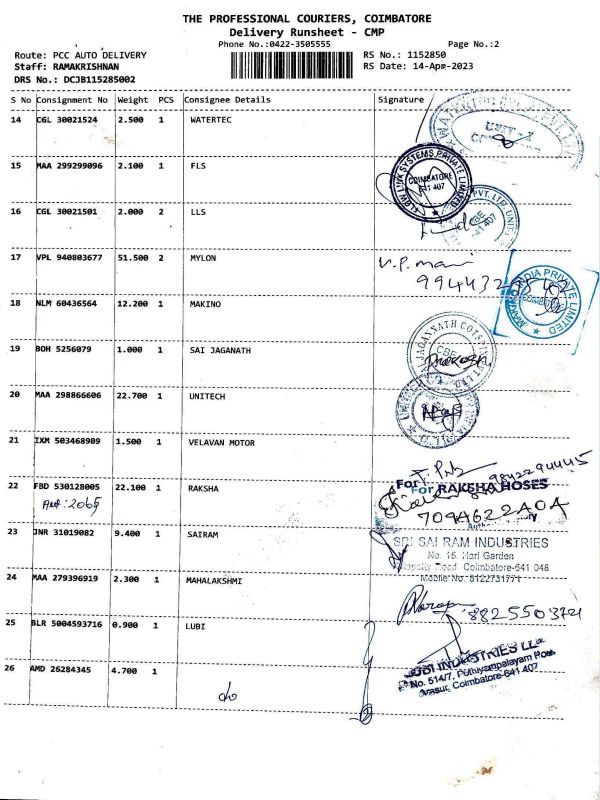 THE PROFESSIONAL COURIERS, COIMBATORE
Delivery Runsheet - CMP
Phone No.:0422-3505555 Page No.:2
Route: PCC AUTO DELIVERY RS No.: 1152850
Staff: RAMAKRISHNAN RS Date: 14-Apr-2023
DRS No.: DCJB115285002
S No Consignment No Weight PCS Consignee Details Signature
14 CGL 30021524 2.500 1 WATERTEC
UNIT-
15 MAA 299299096 2.100 1 FLS
FLOW LINK SYSTEMS PRIVATE LIMITED
COIMBATORE
641 407
16 CGL 30021501 2.000 2 LLS
PVT. LTD. UNIT
641 407
17 VPL 940803677 51.500 2 MYLON
V.P. mani
18 NLM 60436564 12.200 1 MAKINO
INDIA PRIVATE LIMITED
19 BOH 5256079 1.000 1 SAI JAGANATH
JAGANNATH
CBE
20 MAA 298866606 22.700 1 UNITECH
21 IXM 503468909 1.500 1 VELAVAN MOTOR
9842294445
22 FBD 530128005 22.100 1 RAKSHA
For RAKSHA HOSES
23 JNR 31019082 9.400 1 SAIRAM
SRI SAI RAM INDUSTRIES
No. 15, Hari Garden
Road Coimbatore-641 048
Mobile No.
24 MAA 279396919 2.300 1 MAHALAKSHMI
25 BLR 5004593716 0.900 1 LUBI
LUBI INDUSTRIES LLP
No. 514/7, Puthiyampalayam Road
Coimbatore-641 407
26 AMD 26284345 4.700 1
do